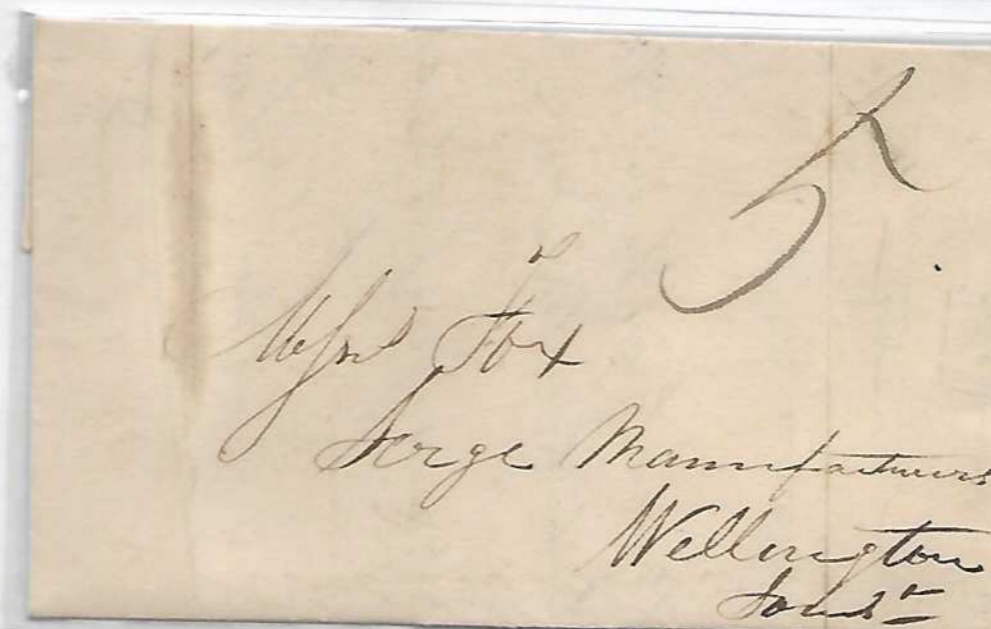 5
Messrs Fox
Serge Manufacturers
Wellington
Somst